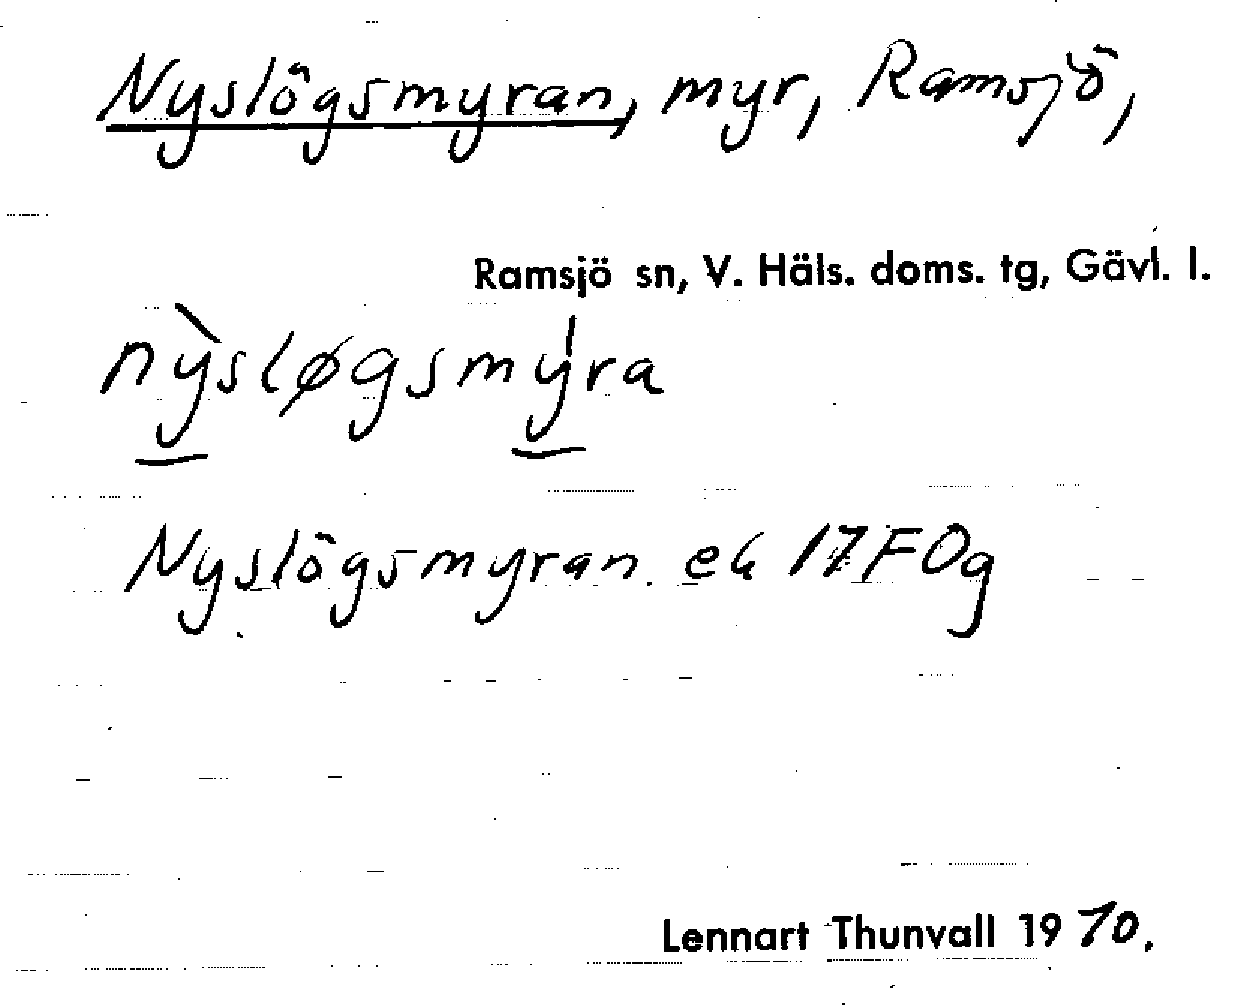 Nyslögsmyran, myr, Ramsjö,
Ramsjö sn, V. Häls. doms. tg, Gävl. l.
nỳsløgsmýra
Nyslögsmyran. ek 17F0g
Lennart Thunvall 1970.